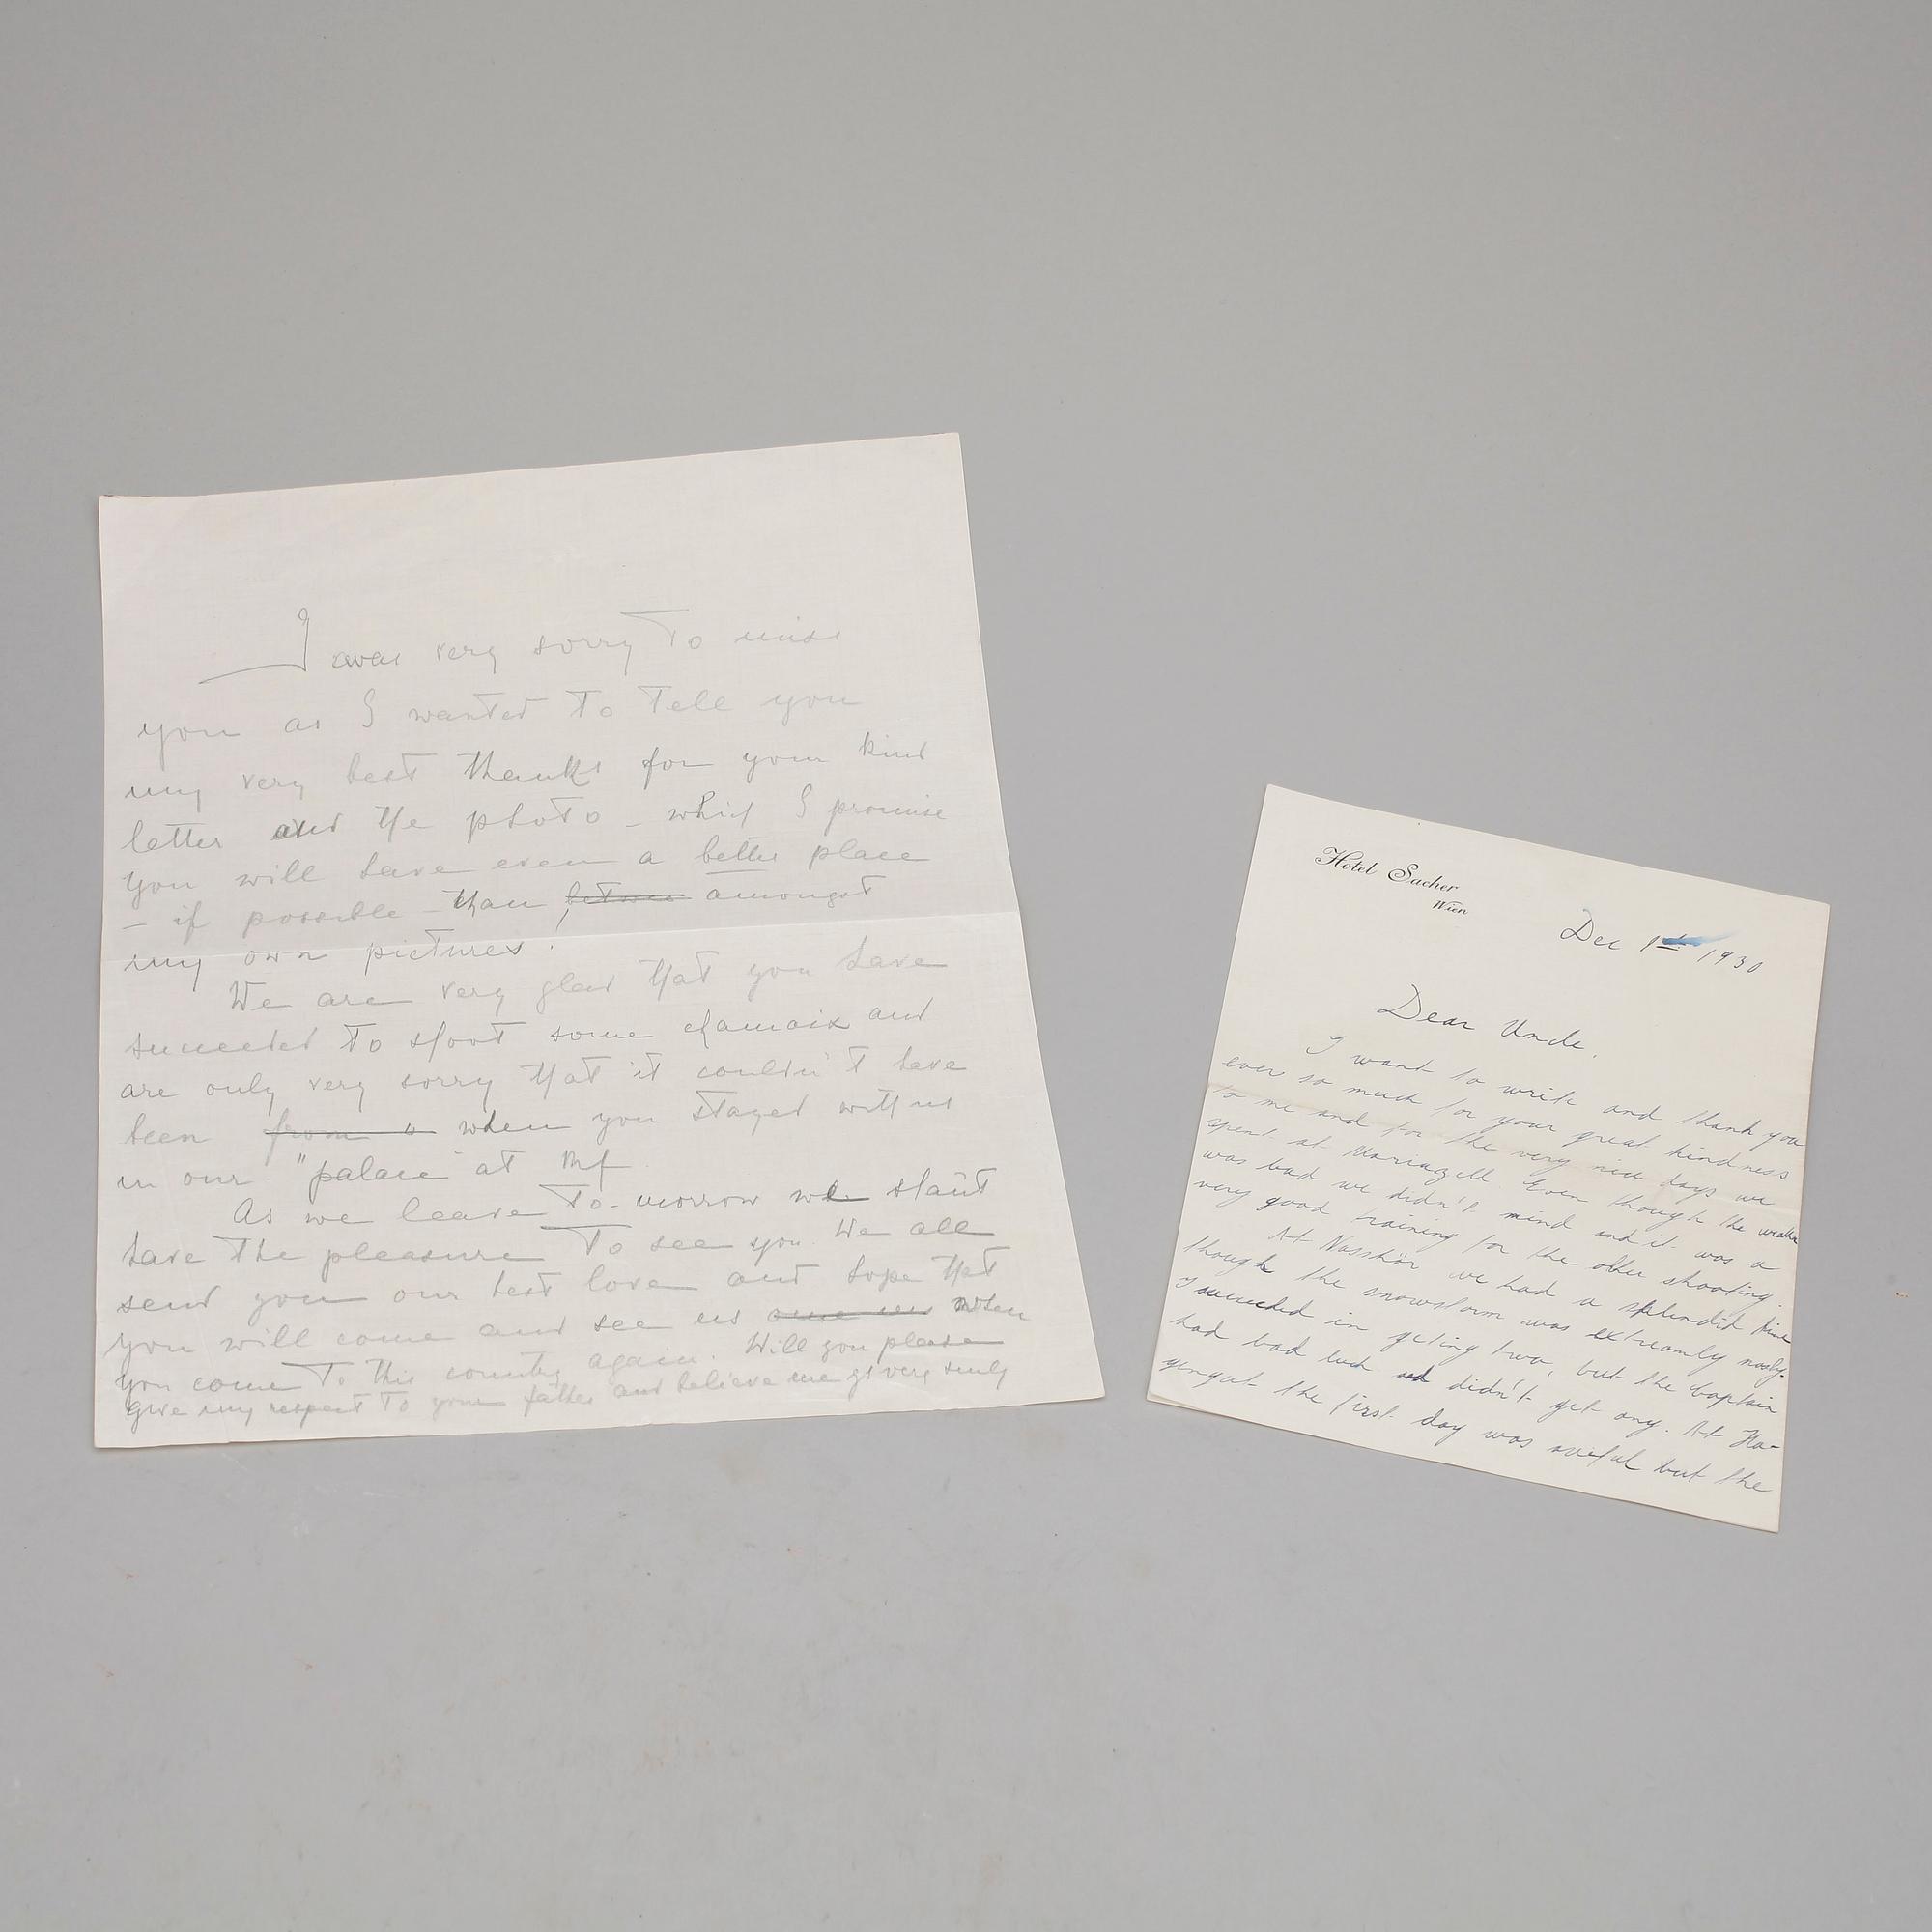 I was very sorry To miss
you as I wanted To Tell you
my very best thanks for your kind
letter and the photo - which I promise
you will have even a better place
- if possible - than between amongst
my own pictures!
We are very glad that you have
succeeded To shoot some chamoix and
are only very sorry that it couldn't have
been from a when you stayed with us
in our "palace" at
As we leave To-morrow we shan't
have The pleasure To see you. We all
send you our best love and hope that
you will come and see us when
you come To This country again. Will you please
give my respect To your father and believe me
Hotel Sacher
Wien
Dec 1st 1930
Dear Uncle.
I want to write and thank you
ever so much for your great kindness
to me and for the very nice days we
spent at Mariazell. Even though the weather
was bad we didn't mind and it was a
very good training for the other shooting.
At Nasskör we had a splendid time
though the snowstorm was extreamly nasty.
I succeeded in geting two, but the Captain
had bad luck and didn't get any. At Ho-
the first day was awful but the